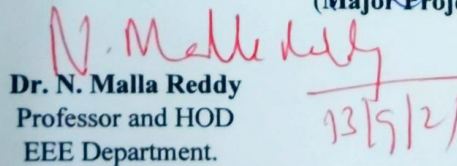 (Major Proj
N. Malla Reddy
Dr. N. Malla Reddy
Professor and HOD
13/9/21
EEE Department.